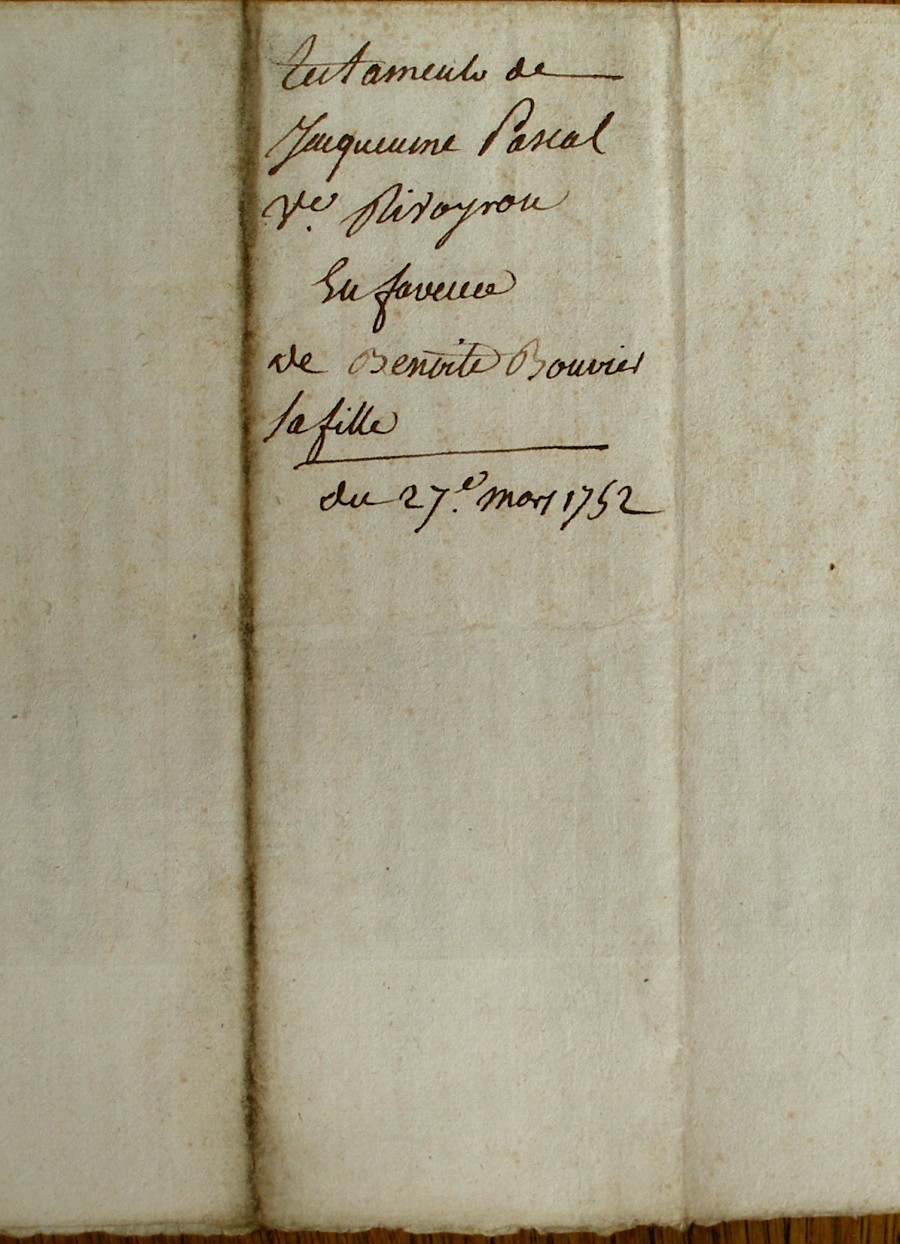 testament de
Jacquemine Pascal
Ve. Rivoyron
En faveur
de Benoite Bouvier
sa fille
du 27e. mars 1752